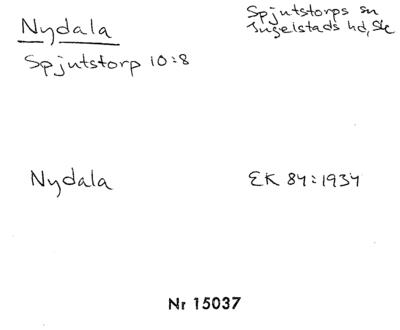 Nydala
Spjutstorps sn
Ingelstads hd, Sk
Spjutstorp 10:8
Nydala
EK 84:1934
Nr 15037